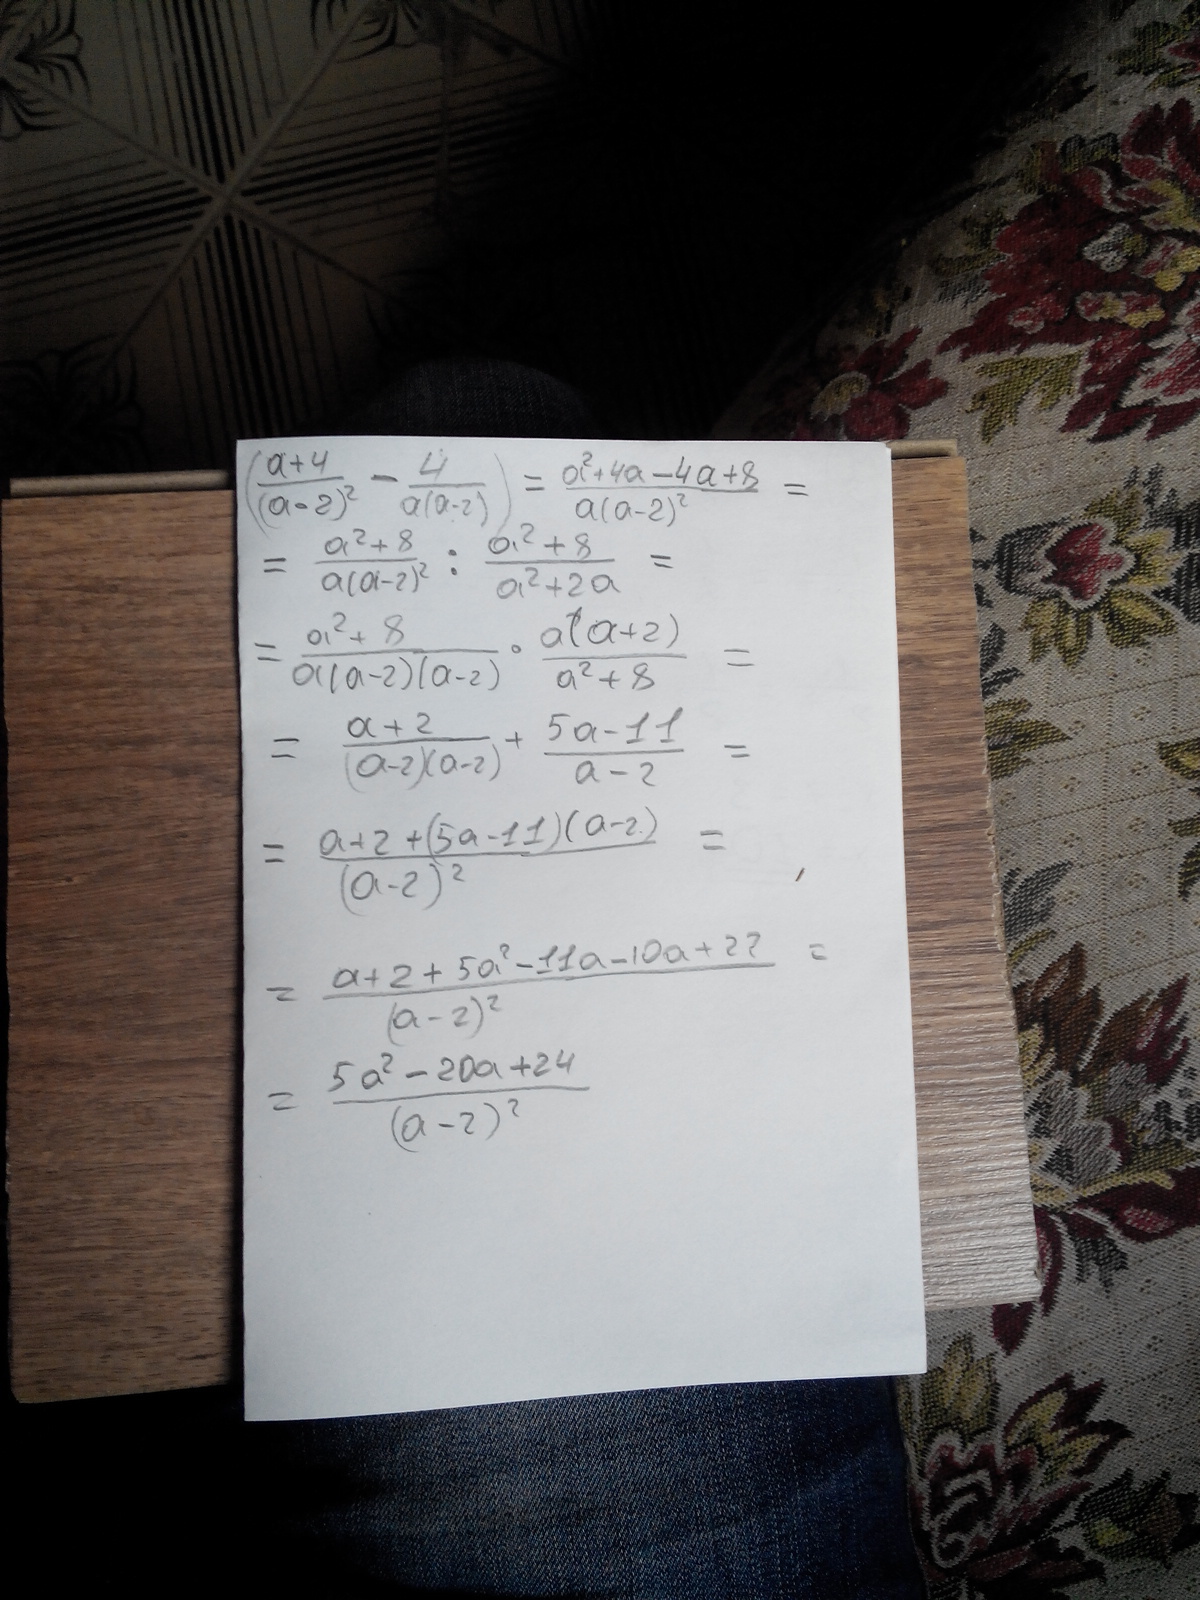 (a+4/(a-2)² - 4/a(a-2)) = a²+4a-4a+8/a(a-2)² =
= a²+8/a(a-2)² : a²+8/a²+2a =
= a²+8/a(a-2)(a-2) · a(a+2)/a²+8 =
= a+2/(a-2)(a-2) + 5a-11/a-2 =
= a+2+(5a-11)(a-2)/(a-2)² =
= a+2+5a²-11a-10a+22/(a-2)² =
= 5a²-20a+24/(a-2)²